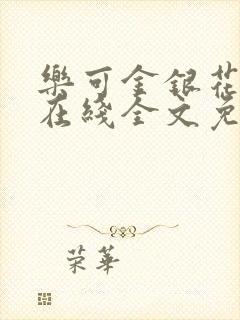 樂可金銀花
在綫全文免
荣華